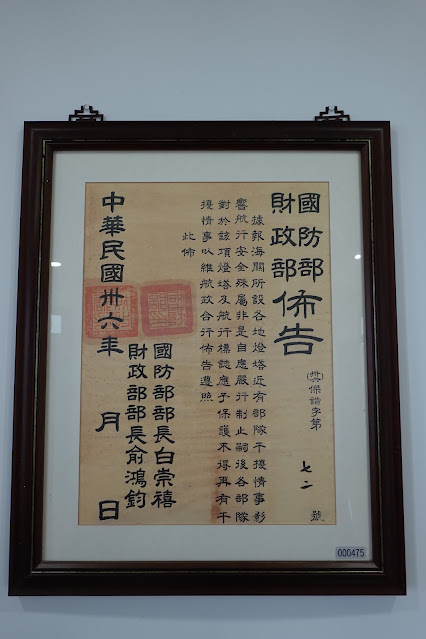 國防部
財政部
佈告
保諧字第 七二 號
據報海關所設各地燈塔近有部隊干擾情事影
響航行安全殊屬非是自應嚴行制止嗣後各部隊
對於該項燈塔及航行標誌應予保護不得再有干
擾情事以維航政合行佈告遵照
此佈
國防部部長白崇禧
財政部部長俞鴻鈞
中華民國卅六年 月 日
000475